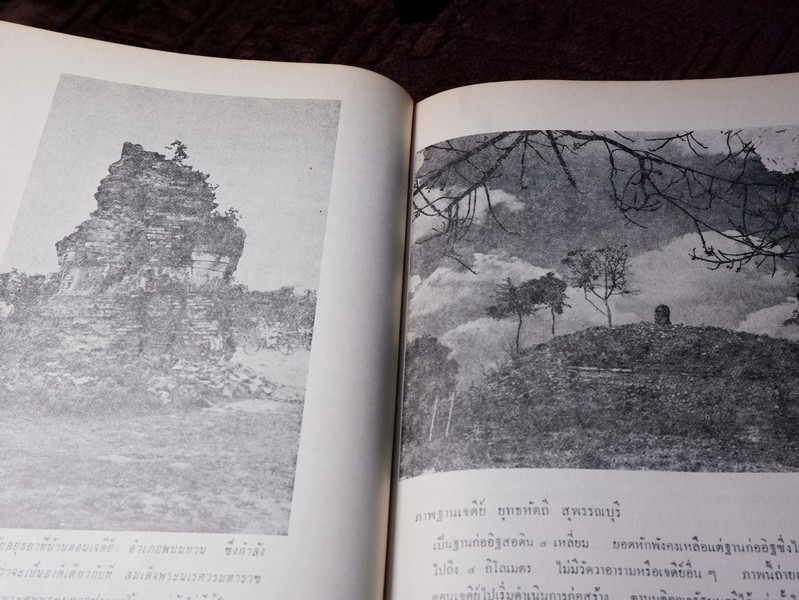 อยุธยาที่บ้านดอนเจดีย์ อำเภอพนมทวน ซึ่งกำลัง
ว่าจะเป็นองค์เดียวกับที่ สมเด็จพระนเรศวรมหาราช
ภาพฐานเจดีย์ ยุทธหัตถี สุพรรณบุรี
เป็นฐานก่ออิฐสอดิน ๔ เหลี่ยม ยอดหักพังคงเหลือแต่ฐานก่ออิฐซึ่ง
ไปถึง ๔ กิโลเมตร ไม่มีวัดวาอารามหรือเจดีย์อื่น ๆ ภาพนี้ถ่าย
ดอนเจดีย์ไปเริ่มดำเนินการก่อสร้าง